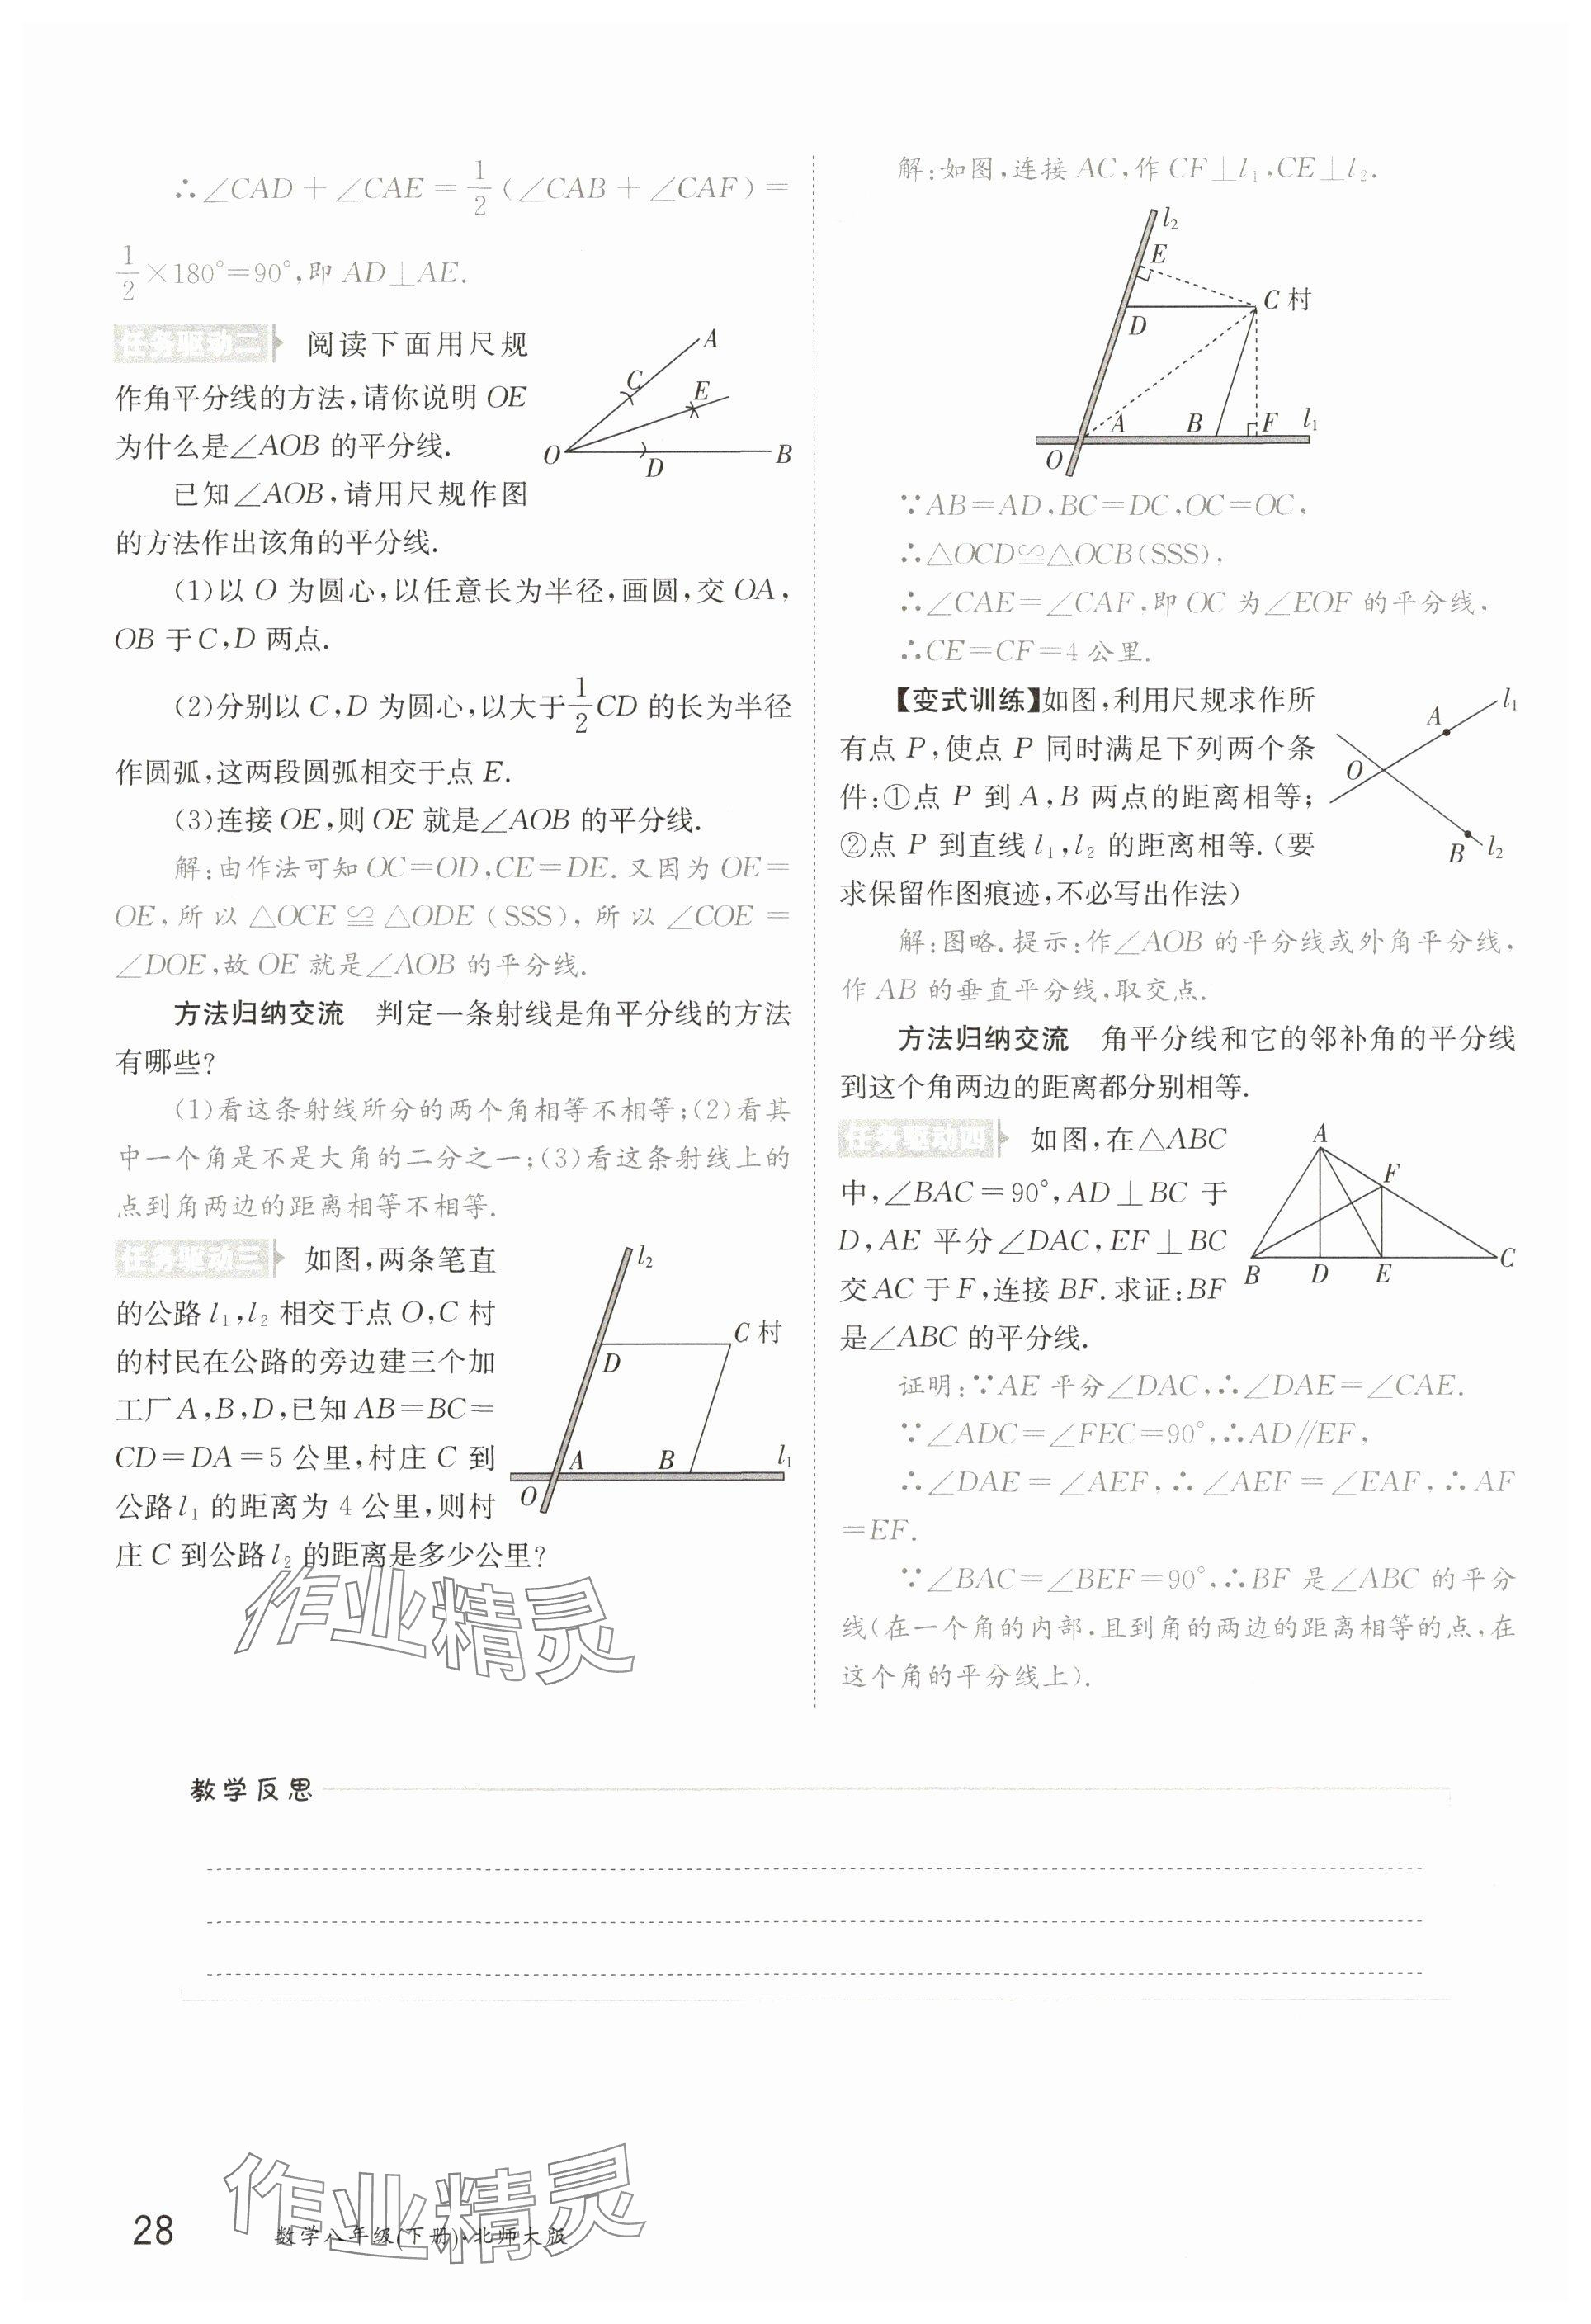 ∴∠CAD + ∠CAE = 1/2 (∠CAB + ∠CAF) =
1/2 ×180°=90°,即 AD⊥AE.
任务驱动二 阅读下面用尺规
作角平分线的方法,请你说明 OE
为什么是∠AOB 的平分线.
已知∠AOB,请用尺规作图
的方法作出该角的平分线.
A
C
E
O
D
B
(1)以 O 为圆心,以任意长为半径,画圆,交 OA,
OB 于 C,D 两点.
(2)分别以 C,D 为圆心,以大于 1/2 CD 的长为半径
作圆弧,这两段圆弧相交于点 E.
(3)连接 OE,则 OE 就是∠AOB 的平分线.
解:由作法可知 OC=OD,CE=DE.又因为 OE=
OE,所以 △OCE ≌ △ODE (SSS),所以 ∠COE =
∠DOE,故 OE 就是∠AOB 的平分线.
方法归纳交流 判定一条射线是角平分线的方法
有哪些?
(1)看这条射线所分的两个角相等不相等;(2)看其
中一个角是不是大角的二分之一;(3)看这条射线上的
点到角两边的距离相等不相等.
任务驱动三 如图,两条笔直
的公路 l₁,l₂ 相交于点 O,C 村
的村民在公路的旁边建三个加
工厂 A,B,D,已知 AB=BC=
CD=DA=5 公里,村庄 C 到
公路 l₁ 的距离为 4 公里,则村
庄 C 到公路 l₂ 的距离是多少公里?
l₂
C 村
D
A
B
l₁
O
作业精灵
解:如图,连接 AC,作 CF⊥l₁,CE⊥l₂.
l₂
E
C 村
D
A
B
F
l₁
O
∵AB=AD,BC=DC,OC=OC,
∴△OCD≌△OCB(SSS),
∴∠CAE=∠CAF,即 OC 为∠EOF 的平分线,
∴CE=CF=4 公里.
【变式训练】如图,利用尺规求作所
有点 P,使点 P 同时满足下列两个条
件:①点 P 到 A,B 两点的距离相等;
②点 P 到直线 l₁,l₂ 的距离相等.(要
求保留作图痕迹,不必写出作法)
l₁
A
O
B
l₂
解:图略.提示:作∠AOB 的平分线或外角平分线,
作 AB 的垂直平分线,取交点.
方法归纳交流 角平分线和它的邻补角的平分线
到这个角两边的距离都分别相等.
任务驱动四 如图,在△ABC
中,∠BAC=90°,AD⊥BC 于
D,AE 平分∠DAC,EF⊥BC
交 AC 于 F,连接 BF.求证:BF
是∠ABC 的平分线.
A
F
B
D
E
C
证明:∵AE 平分∠DAC,∴∠DAE=∠CAE.
∵∠ADC=∠FEC=90°,∴AD∥EF,
∴∠DAE = ∠AEF,∴ ∠AEF = ∠EAF,∴ AF
=EF.
∵∠BAC=∠BEF=90°,∴BF 是∠ABC 的平分
线(在一个角的内部,且到角的两边的距离相等的点,在
这个角的平分线上).
教学反思
作业精灵
28
数学八年级(下册)·北师大版